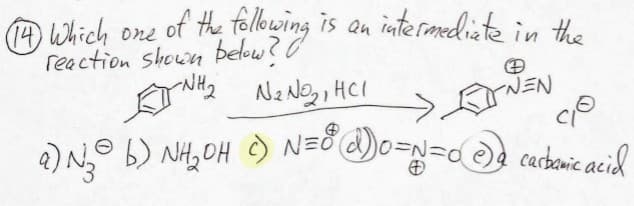 (14) Which one of the following is an intermediate in the
reaction shown below?
NH₂ NaNO₂, HCl ⊕ N≡N Cl⊖
a) N₃⊖ b) NH₂OH c) N≡O⊕ d) O=N=O ⊕ e) a carbamic acid